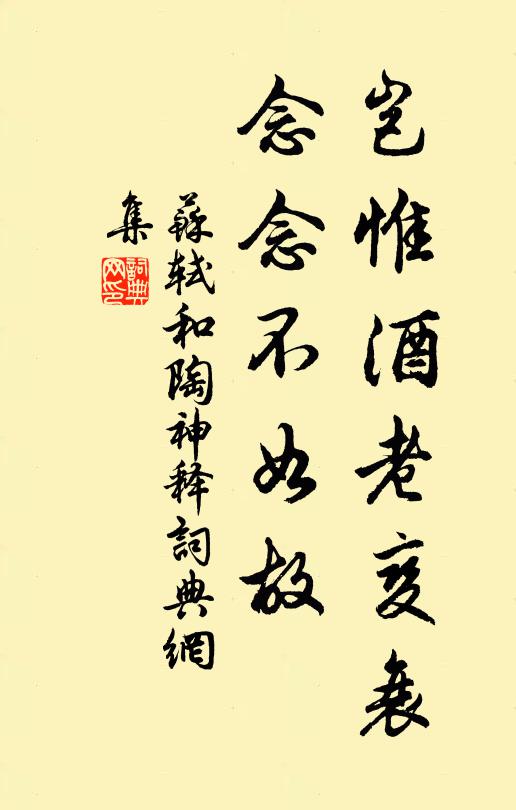 岂惟酒老变衰
念念不如故
蘇軾和陶神释詞典網
集
詞典
网印